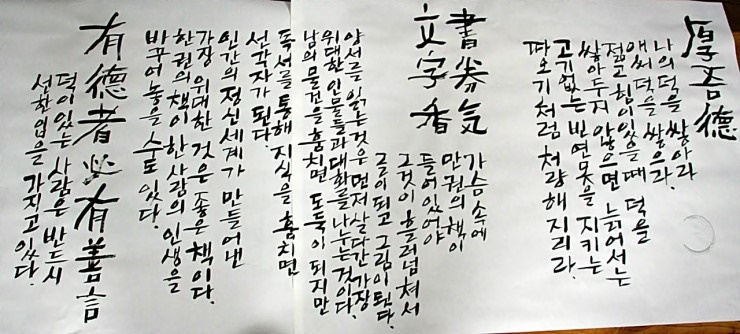 厚吾德
나의 덕을 쌓아라
애써 덕을 쌓으라.
젊고 힘이 있을 때 덕을
쌓아두지 않으면 늙어서는
고기없는 빈 연못을 지키는
따오기처럼 처량해 지리라.
書券気
文字香
가슴 속에
만권의 책이
들어있어야
그것이 흘러넘쳐서
글이 되고 그림이 된다.
양서를 읽는것은 먼저 살다간 가장
위대한 인물들과 대화를 나누는 것이다.
남의 물건을 훔치면 도둑이 되지만
독서를 통해 지식을 훔치면
선각자가 된다.
인간의 정신세계가 만들어낸
가장 위대한 것은 좋은 책이다.
한권의 책이 한사람의 인생을
바꾸어 놓을 수도 있다.
有德者必有善言
덕이 있는 사람은 반드시
선한 입을 가지고 있다.